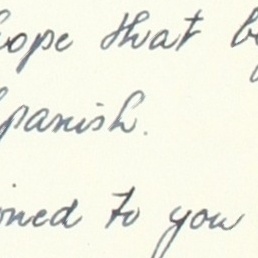 hope that b
Spanish.
oned to you